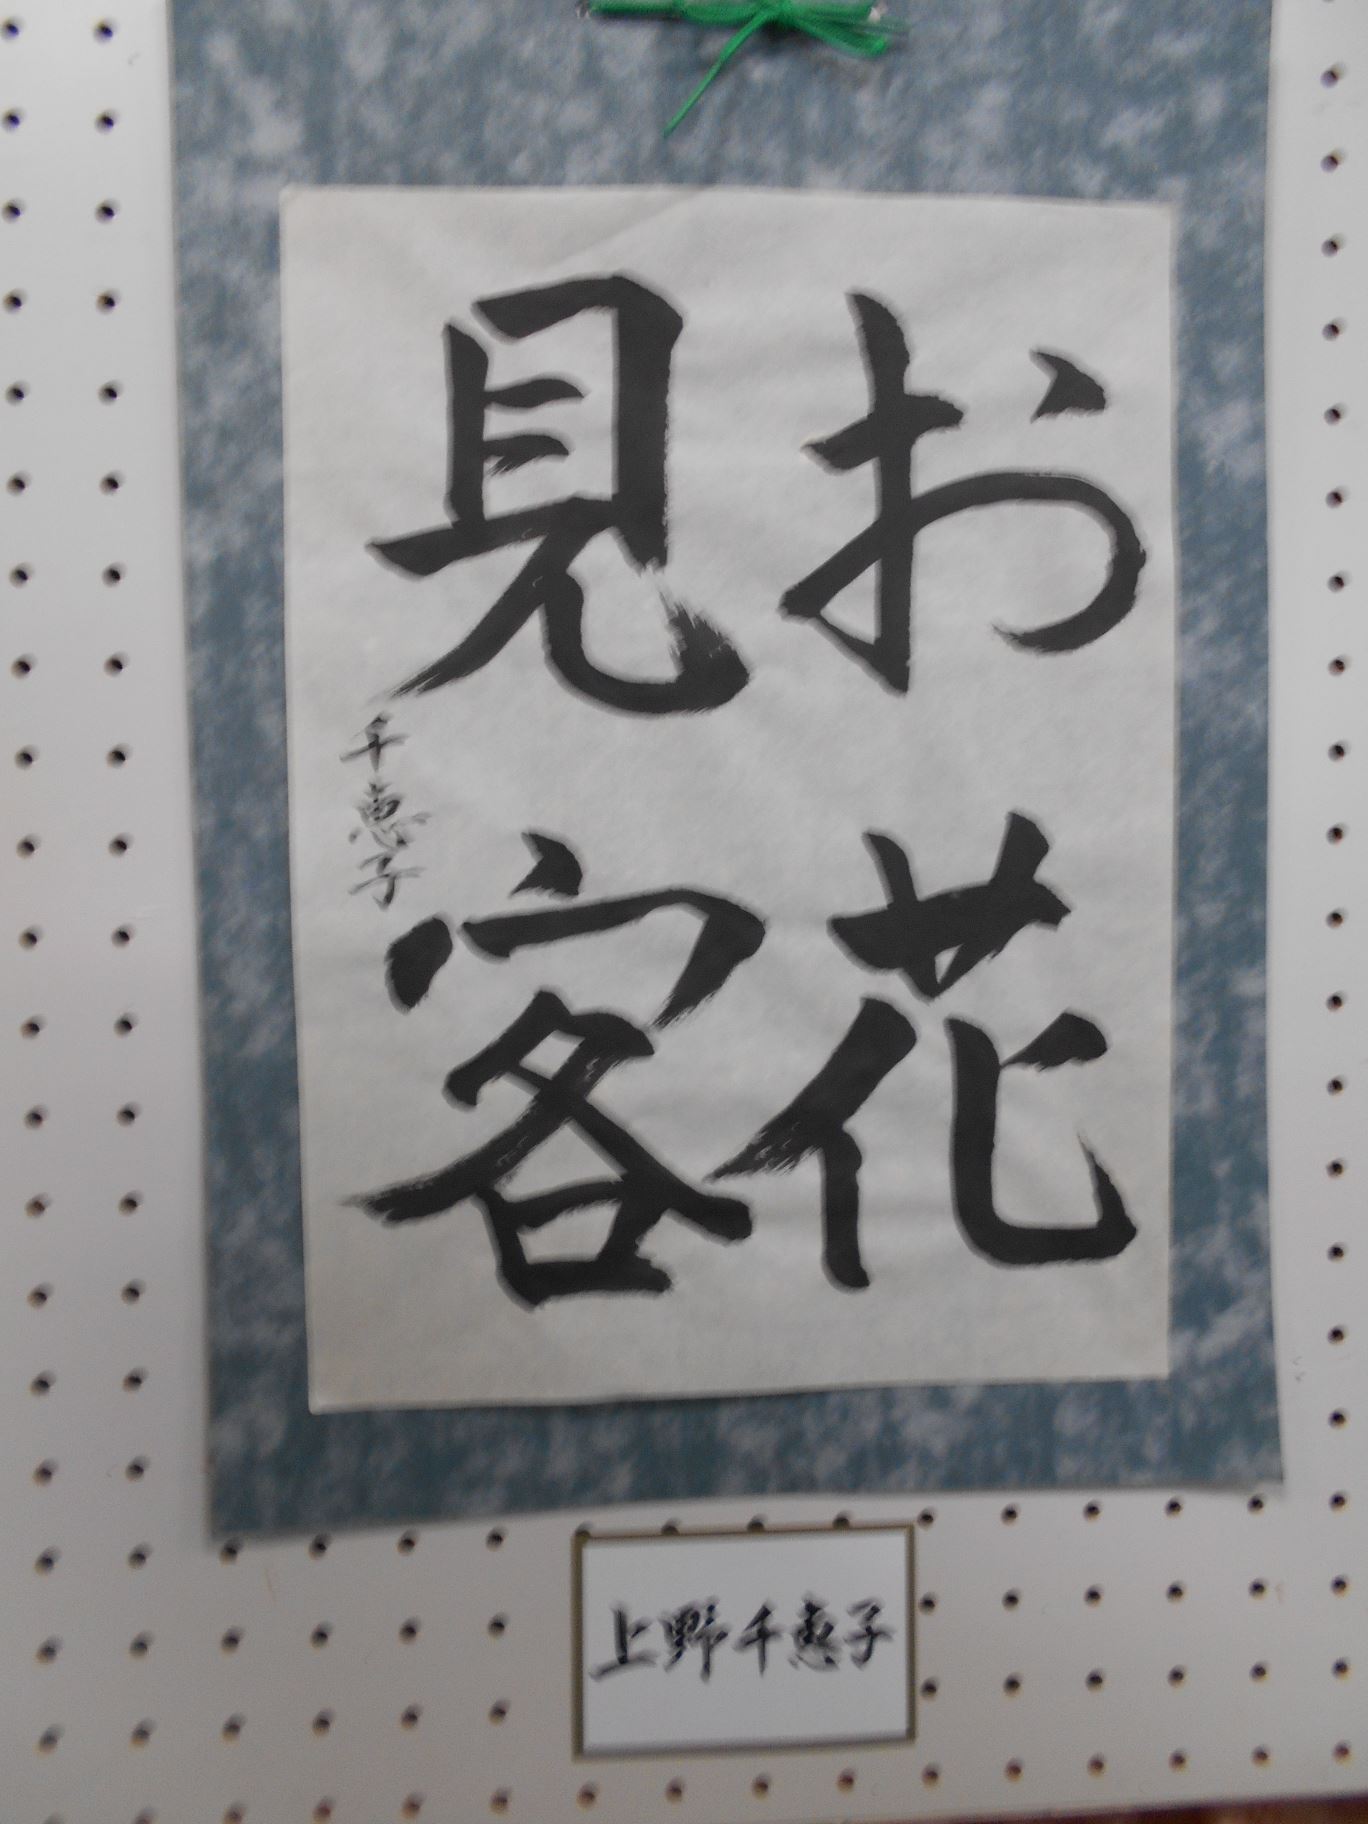 お花
見客
千恵子
上野千恵子